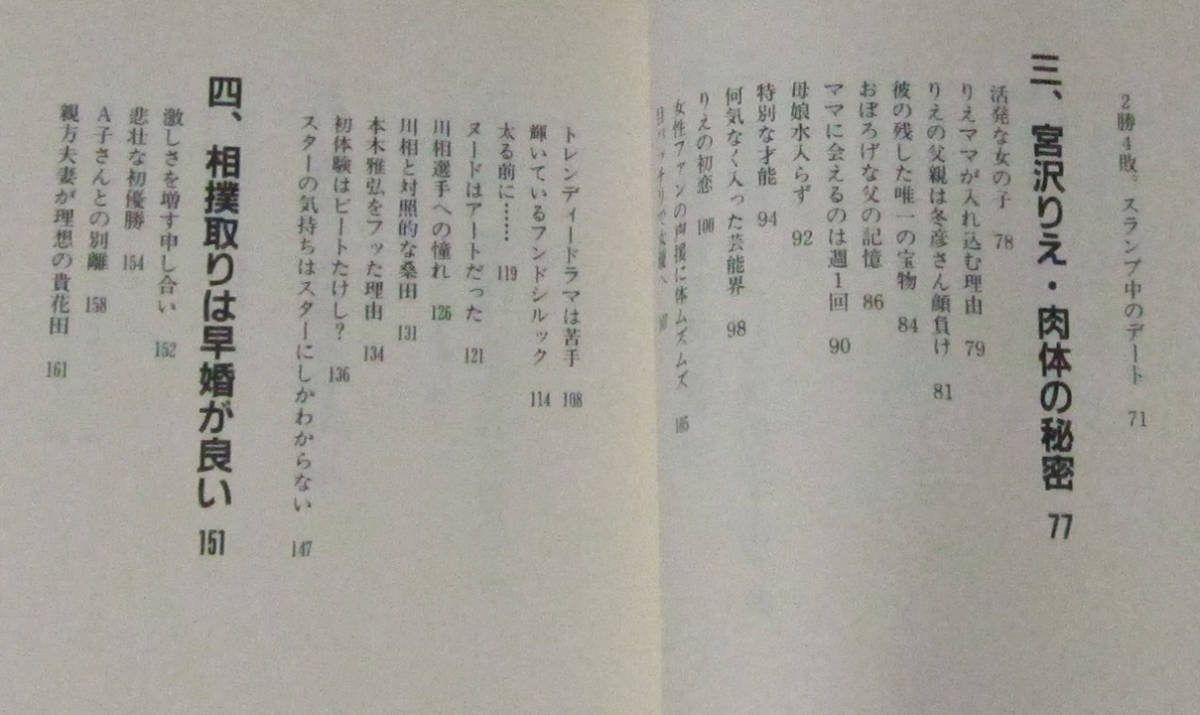 2勝4敗。スランプ中のデート 71
三、宮沢りえ・肉体の秘密 77
活発な女の子 78
りえママが入れ込む理由 79
りえの父親は冬彦さん顔負け 81
彼の残した唯一の宝物 84
おぼろげな父の記憶 86
ママに会えるのは週1回 90
母娘水入らず 92
特別な才能 94
何気なく入った芸能界 98
りえの初恋 100
女性ファンの声援に体ムズムズ 105
トレンディードラマは苦手 108
輝いているフンドシルック 114
太る前に…… 119
ヌードはアートだった 121
川相選手への憧れ 126
川相と対照的な桑田 131
本木雅弘をフッた理由 134
初体験はビートたけし? 136
スターの気持ちはスターにしかわからない 147
四、相撲取りは早婚が良い 151
激しさを増す申し合い 152
悲壮な初優勝 154
A子さんとの別離 158
親方夫妻が理想の貴花田 161